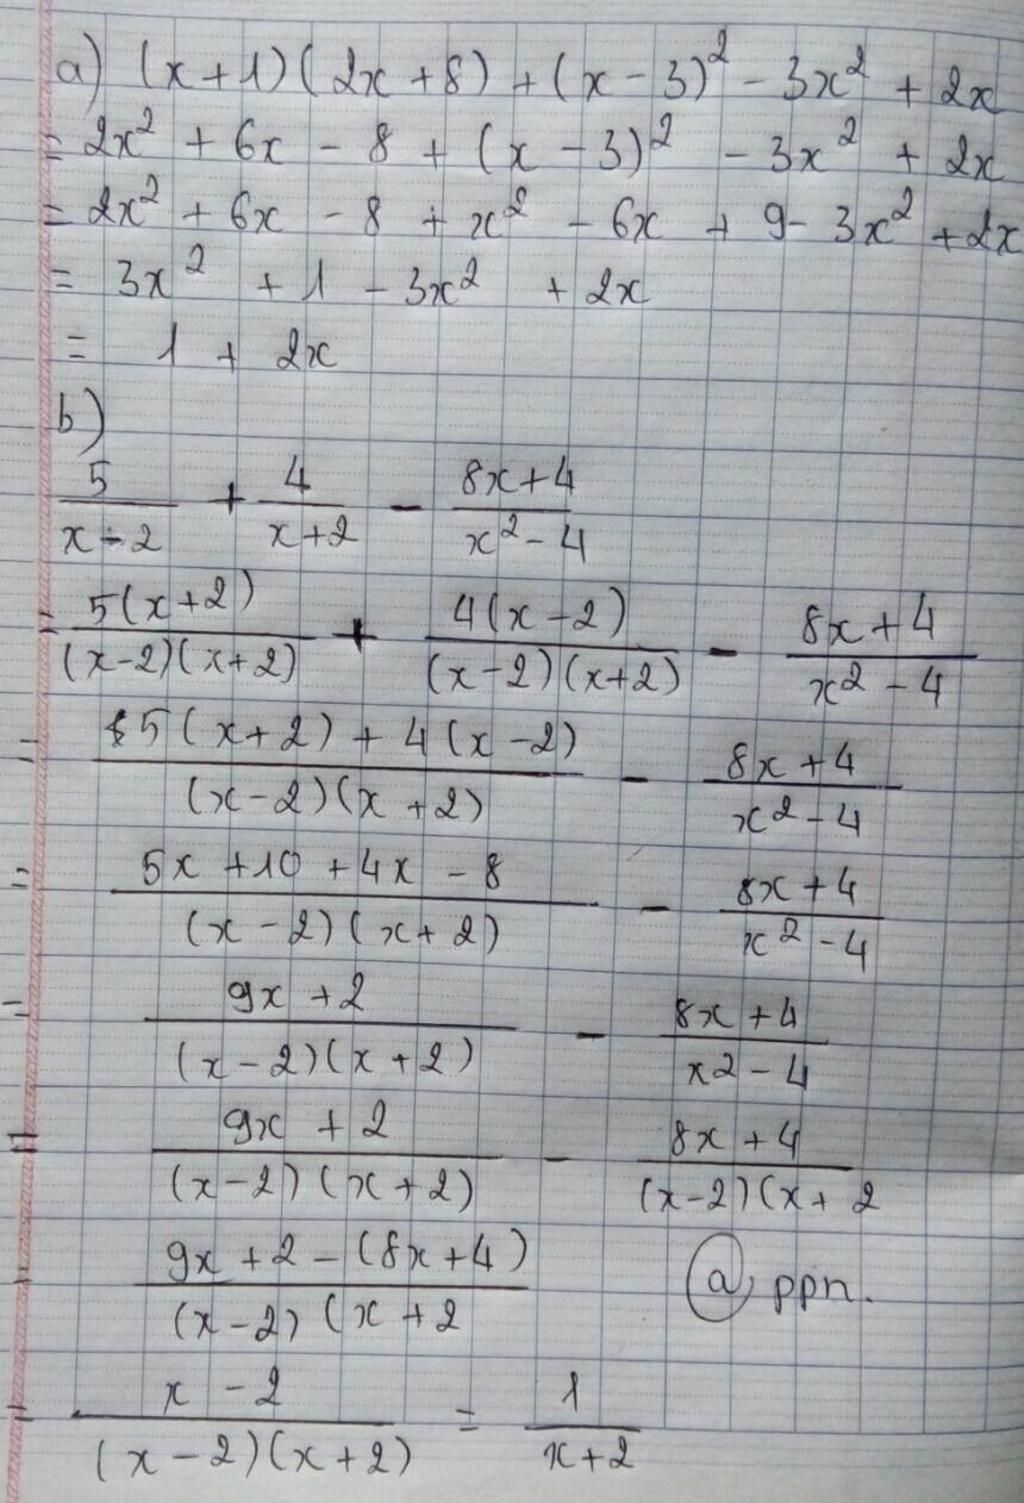 a) (x+1)(2x+8)+(x-3)²-3x²+2x
= 2x²+6x-8+(x-3)²-3x²+2x
= 2x²+6x-8+x²-6x+9-3x²+2x
= 3x²+1-3x²+2x
= 1+2x
b)
5/(x-2) + 4/(x+2) - (8x+4)/(x²-4)
= 5(x+2)/(x-2)(x+2) + 4(x-2)/(x-2)(x+2) - (8x+4)/(x²-4)
= 5(x+2)+4(x-2)/(x-2)(x+2) - (8x+4)/(x²-4)
= 5x+10+4x-8/(x-2)(x+2) - (8x+4)/(x²-4)
= 9x+2/(x-2)(x+2) - (8x+4)/(x²-4)
= 9x+2/(x-2)(x+2) - 8x+4/(x-2)(x+2
= 9x+2-(8x+4)/(x-2)(x+2 @ ppn.
= x-2/(x-2)(x+2) = 1/(x+2)